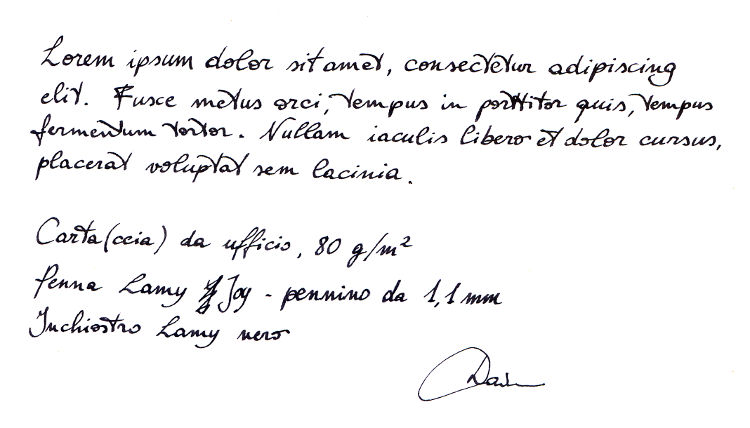 Lorem ipsum dolor sit amet, consectetur adipiscing
elit. Fusce metus orci, tempus in porttitor quis, tempus
fermentum tortor. Nullam iaculis libero et dolor cursus,
placerat voluptat sem lacinia.
Carta(ccia) da ufficio, 80 g/m²
Penna Lamy Joy - pennino da 1,1 mm
Inchiostro Lamy nero